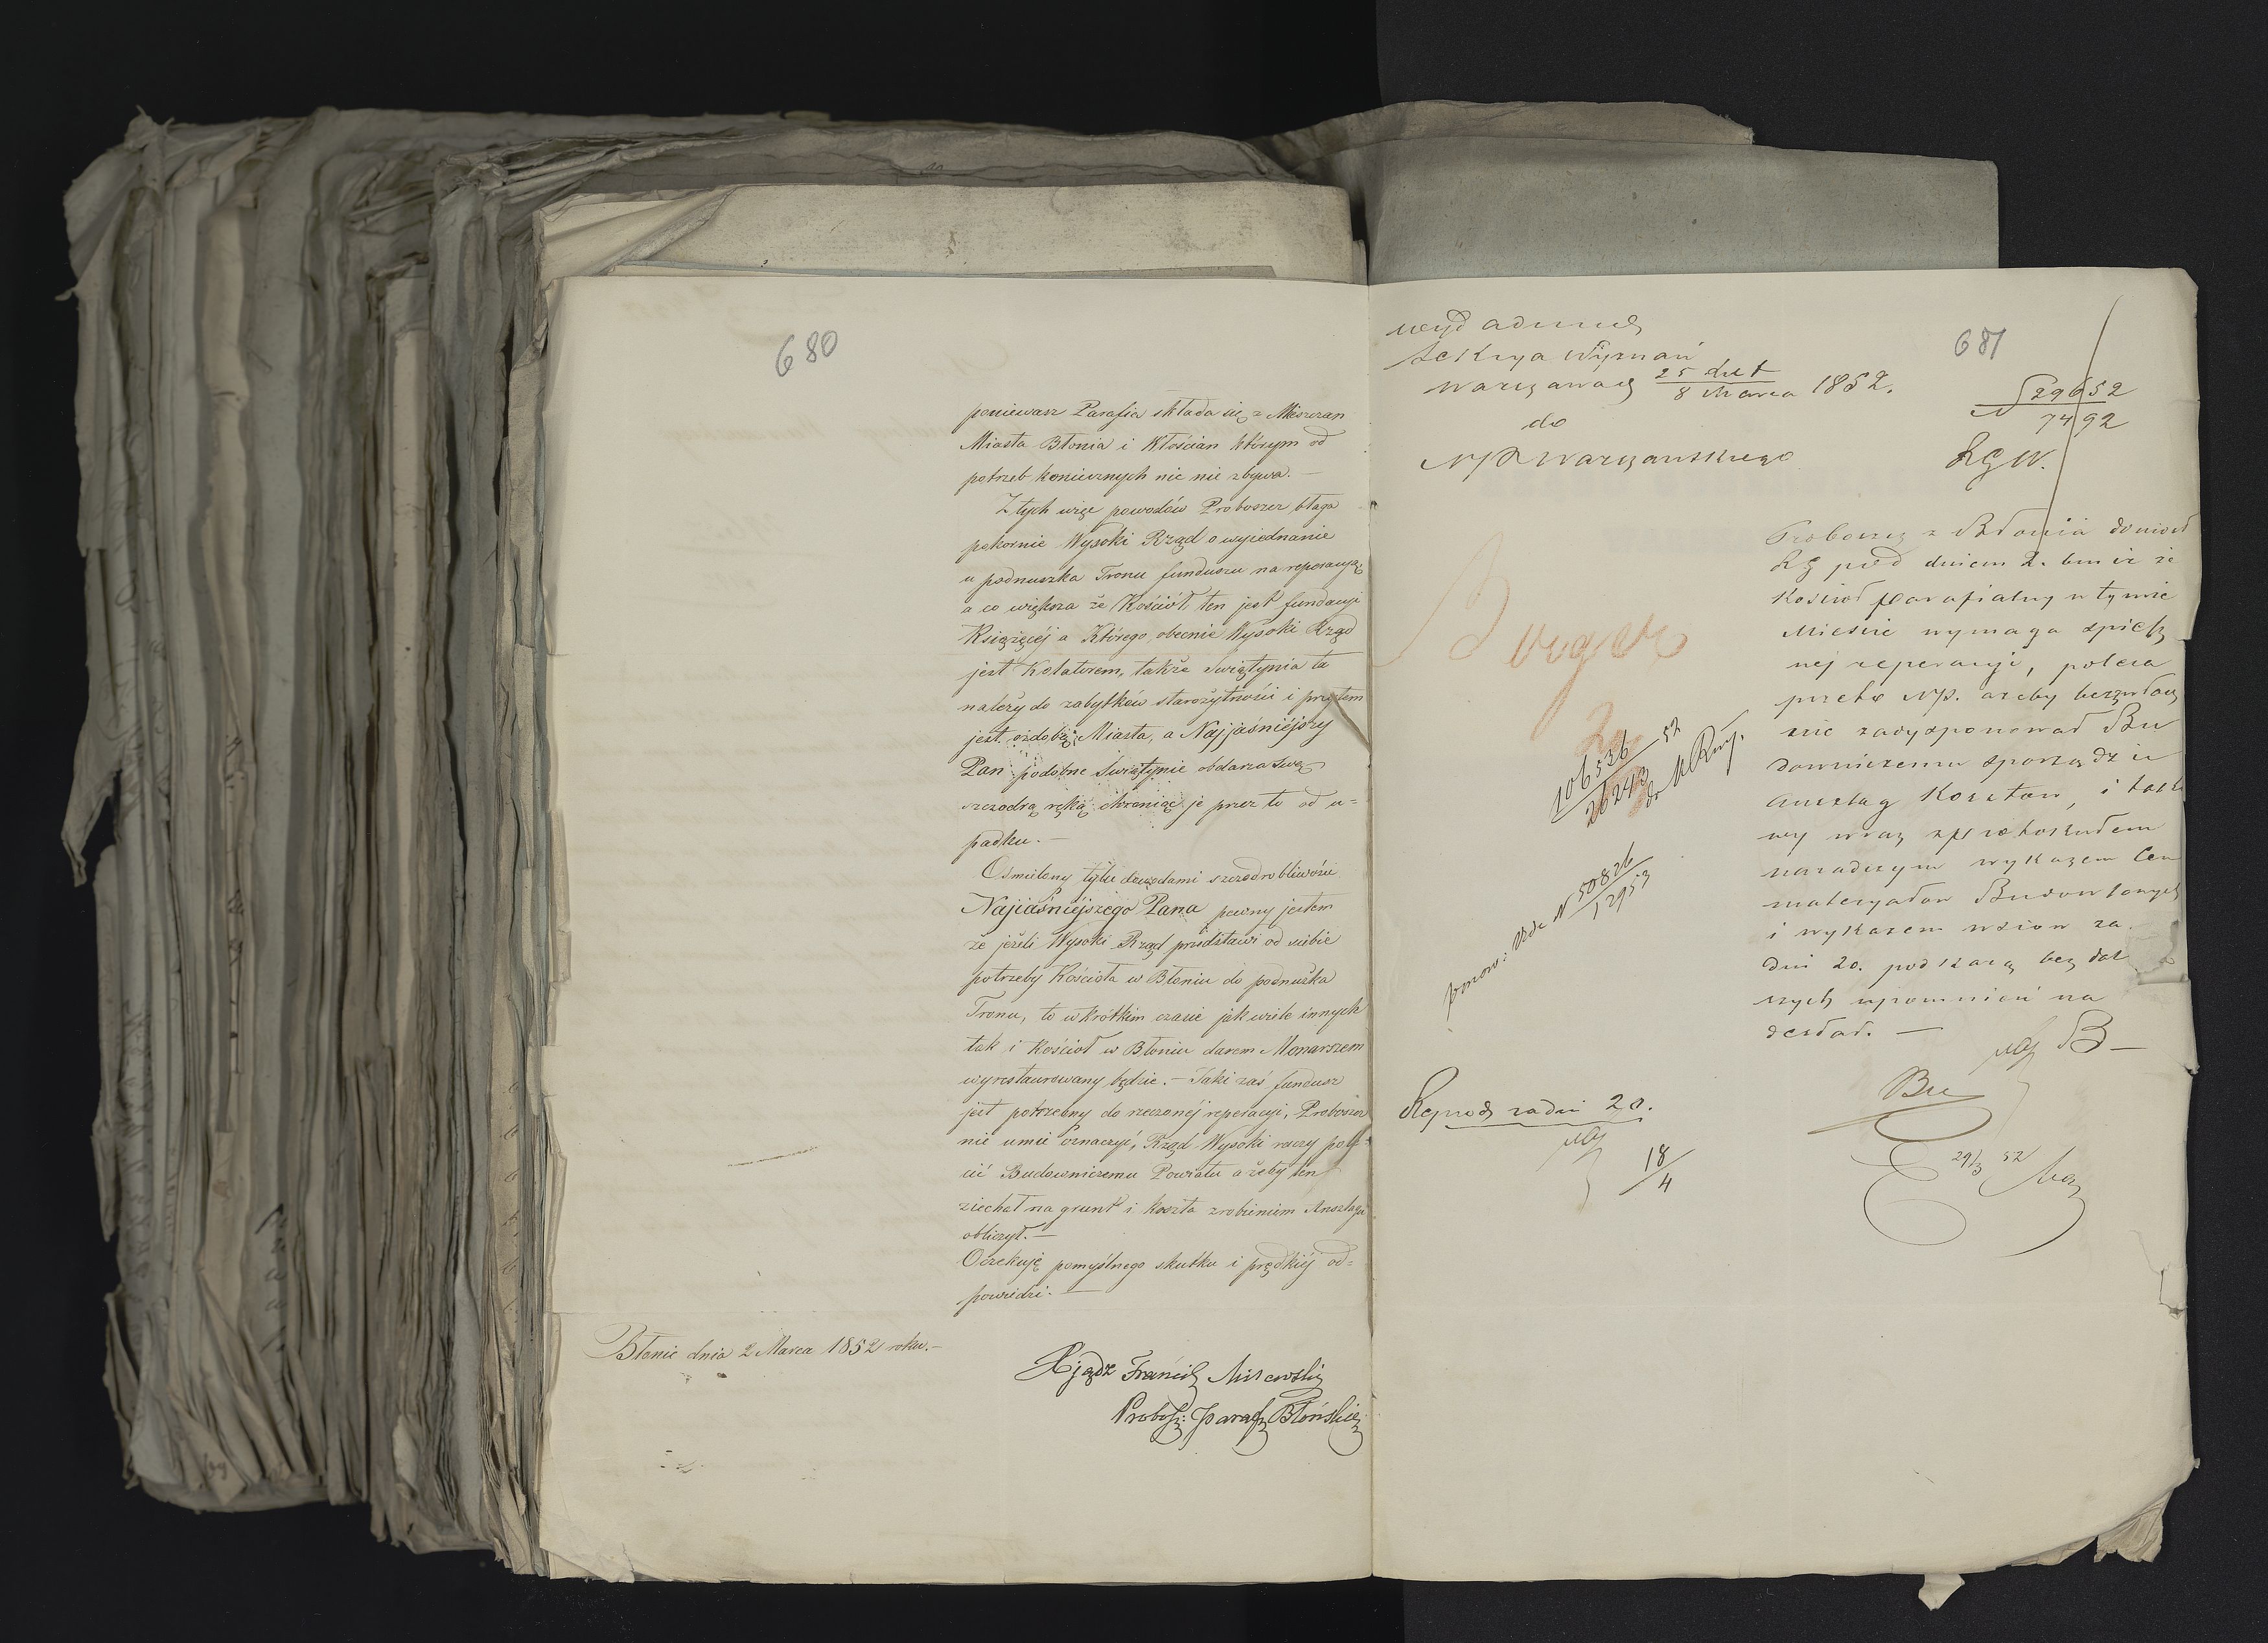 680
poniewasz Parafia składa się z Mieszczan
Miasta Błonia i Włościan którym od
potrzeb koniecznych nic nie zbywa. —
Z tych więc powodów Proboszcz błaga
pokornie Wysoki Rząd o wyjednanie
u podnuszka Tronu funduszu na reperacyją
a co większa że Kościół ten jest fundacyi
Książęcéj a Którego obecnie Wysoki Rząd
jest Kolatorem, także Swiątynia ta
należy do zabytków starożytności i przytem
jest ozdobą Miasta, a Najjaśniéjszy
Pan podobne Swiątynie obdarza swą
szczodrą ręką chroniąc je przez to od u=
padku. —
Ośmielony tylu dowodami szczodrobliwości
Najiaśniejszego Pana pewny jestem
że jeżeli Wysoki Rząd przedstawi od siebie
potrzeby Kościoła w Błoniu do podnużka
Tronu, to w krótkim czasie jak wiele innych
tak i Kościoł w Błoniu darem Monarszem
wyrestaurowany będzie. — Jaki zaś fundusz
jest potrzebny do rzeczonéj reperacyi, Proboszcz
nie umie oznaczyć, Rząd Wysoki raczy pole=
cić Budowniczemu Powiatu ażeby ten
ziechał na grunt i koszta zrobieniem Anszlagu
obliczył. —
Oczekuję pomyślnego skutku i prędkiéj od=
powiedzi. —
Błonie dnia 2 Marca 1852 roku. —
Xjądz Franciszek
Probosz: Paraf: Błońskiej
681
Sekcya Wyznań
Warszawa 25 lut / 8 Marca 1852.
do
NP Warszawskiego
N 29652 / 7492
RGW.
Proboszcz z Błonia doniosł
RG pod dniem 2. bm ir że
Kościoł parafialny w tymże
Mieście wymaga spiesz
nej reperacyi, poleca
przeto NP. ażeby bezzwłocz
nie zadysponował Bu
downiczemu sporządzić
Anszlag Kosztow, i takowy
wraz z protokułem
naradczym wykazem Cen
materyałow Budowlanych
i wykazem wsiow za
dni 20. pod karą bez dal
szych upomnień na
desłał. —
Burger
106536 / 26243 52
ponow: N 50826 / 12953
Reprod za dni 20.
18/4
29/3 52